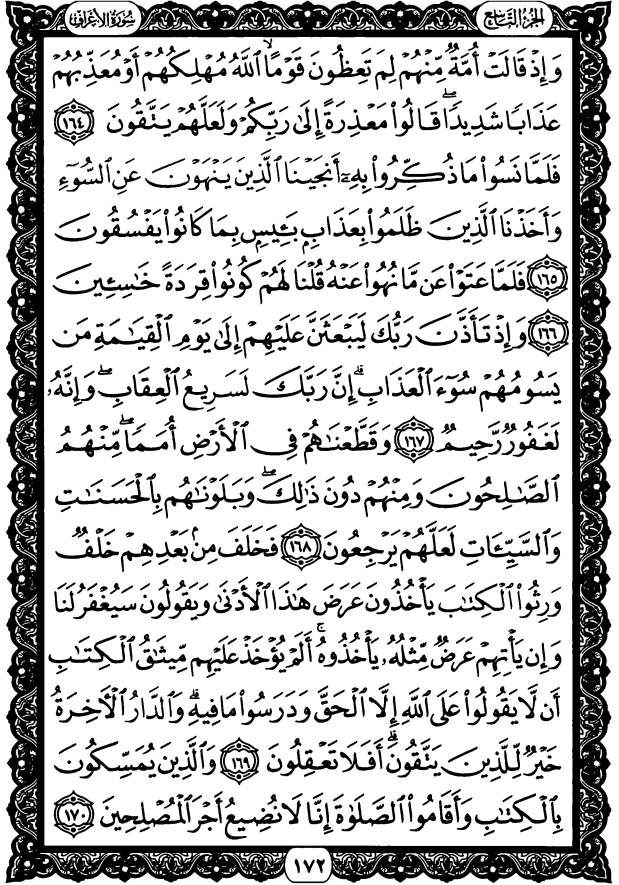 الجزء التاسع
سورة الأعراف
وَإِذْ قَالَتْ أُمَّةٌ مِّنْهُمْ لِمَ تَعِظُونَ قَوْمًا ۙ ٱللَّهُ مُهْلِكُهُمْ أَوْ مُعَذِّبُهُمْ
عَذَابًا شَدِيدًا ۖ قَالُوا۟ مَعْذِرَةً إِلَىٰ رَبِّكُمْ وَلَعَلَّهُمْ يَتَّقُونَ ١٦٤
فَلَمَّا نَسُوا۟ مَا ذُكِّرُوا۟ بِهِۦٓ أَنجَيْنَا ٱلَّذِينَ يَنْهَوْنَ عَنِ ٱلسُّوٓءِ
وَأَخَذْنَا ٱلَّذِينَ ظَلَمُوا۟ بِعَذَابٍۭ بَـِٔيسٍۭ بِمَا كَانُوا۟ يَفْسُقُونَ
١٦٥ فَلَمَّا عَتَوْا۟ عَن مَّا نُهُوا۟ عَنْهُ قُلْنَا لَهُمْ كُونُوا۟ قِرَدَةً خَٰسِـِٔينَ
١٦٦ وَإِذْ تَأَذَّنَ رَبُّكَ لَيَبْعَثَنَّ عَلَيْهِمْ إِلَىٰ يَوْمِ ٱلْقِيَٰمَةِ مَن
يَسُومُهُمْ سُوٓءَ ٱلْعَذَابِ ۗ إِنَّ رَبَّكَ لَسَرِيعُ ٱلْعِقَابِ ۖ وَإِنَّهُۥ
لَغَفُورٌ رَّحِيمٌ ١٦٧ وَقَطَّعْنَٰهُمْ فِى ٱلْأَرْضِ أُمَمًا ۖ مِّنْهُمُ
ٱلصَّٰلِحُونَ وَمِنْهُمْ دُونَ ذَٰلِكَ ۖ وَبَلَوْنَٰهُم بِٱلْحَسَنَٰتِ
وَٱلسَّيِّـَٔاتِ لَعَلَّهُمْ يَرْجِعُونَ ١٦٨ فَخَلَفَ مِنۢ بَعْدِهِمْ خَلْفٌ
وَرِثُوا۟ ٱلْكِتَٰبَ يَأْخُذُونَ عَرَضَ هَٰذَا ٱلْأَدْنَىٰ وَيَقُولُونَ سَيُغْفَرُ لَنَا
وَإِن يَأْتِهِمْ عَرَضٌ مِّثْلُهُۥ يَأْخُذُوهُ ۚ أَلَمْ يُؤْخَذْ عَلَيْهِم مِّيثَٰقُ ٱلْكِتَٰبِ
أَن لَّا يَقُولُوا۟ عَلَى ٱللَّهِ إِلَّا ٱلْحَقَّ وَدَرَسُوا۟ مَا فِيهِ ۗ وَٱلدَّارُ ٱلْءَاخِرَةُ
خَيْرٌ لِّلَّذِينَ يَتَّقُونَ ۗ أَفَلَا تَعْقِلُونَ ١٦٩ وَٱلَّذِينَ يُمَسِّكُونَ
بِٱلْكِتَٰبِ وَأَقَامُوا۟ ٱلصَّلَوٰةَ إِنَّا لَا نُضِيعُ أَجْرَ ٱلْمُصْلِحِينَ ١٧٠
١٧٢